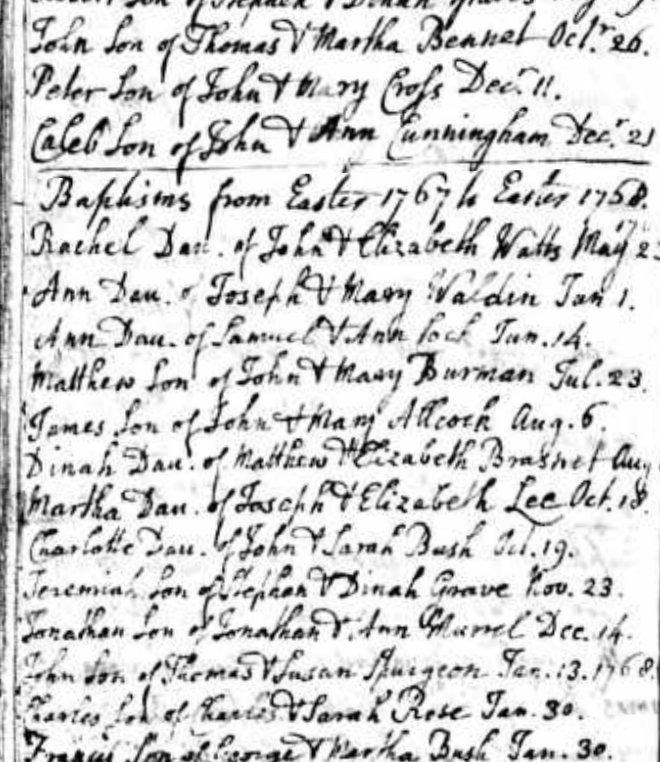 Son of Stephen & Dinah
John Son of Thomas & Martha Bennet Octr. 26.
Peter Son of John & Mary Cross Decr. 11.
Caleb Son of John & Ann Cunningham Decr. 21
Baptisms from Easter 1767 to Easter 1768.
Rachel Dau. of John & Elizabeth Watts May
Ann Dau. of Joseph & Mary Waldin Jun 1.
Ann Dau. of Samuel & Ann Lock Jun. 14.
Matthew Son of John & Mary Burman Jul. 23.
James Son of John & Mary Allcock Aug. 6.
Dinah Dau. of Matthew & Elizabeth Brasnet Aug
Martha Dau. of Joseph & Elizabeth Lee Oct. 18.
Charlotte Dau. of John & Sarah Bush Oct. 19.
Jeremiah Son of Stephen & Dinah Grave Nov. 23.
Jonathan Son of Jonathan & Ann Murrel Dec. 14.
John Son of Thomas & Susan Spurgeon Jan. 13. 1768.
Charles Son of Charles & Sarah Rose Jan. 30.
Francis Son of George & Martha Bush Jan. 30.